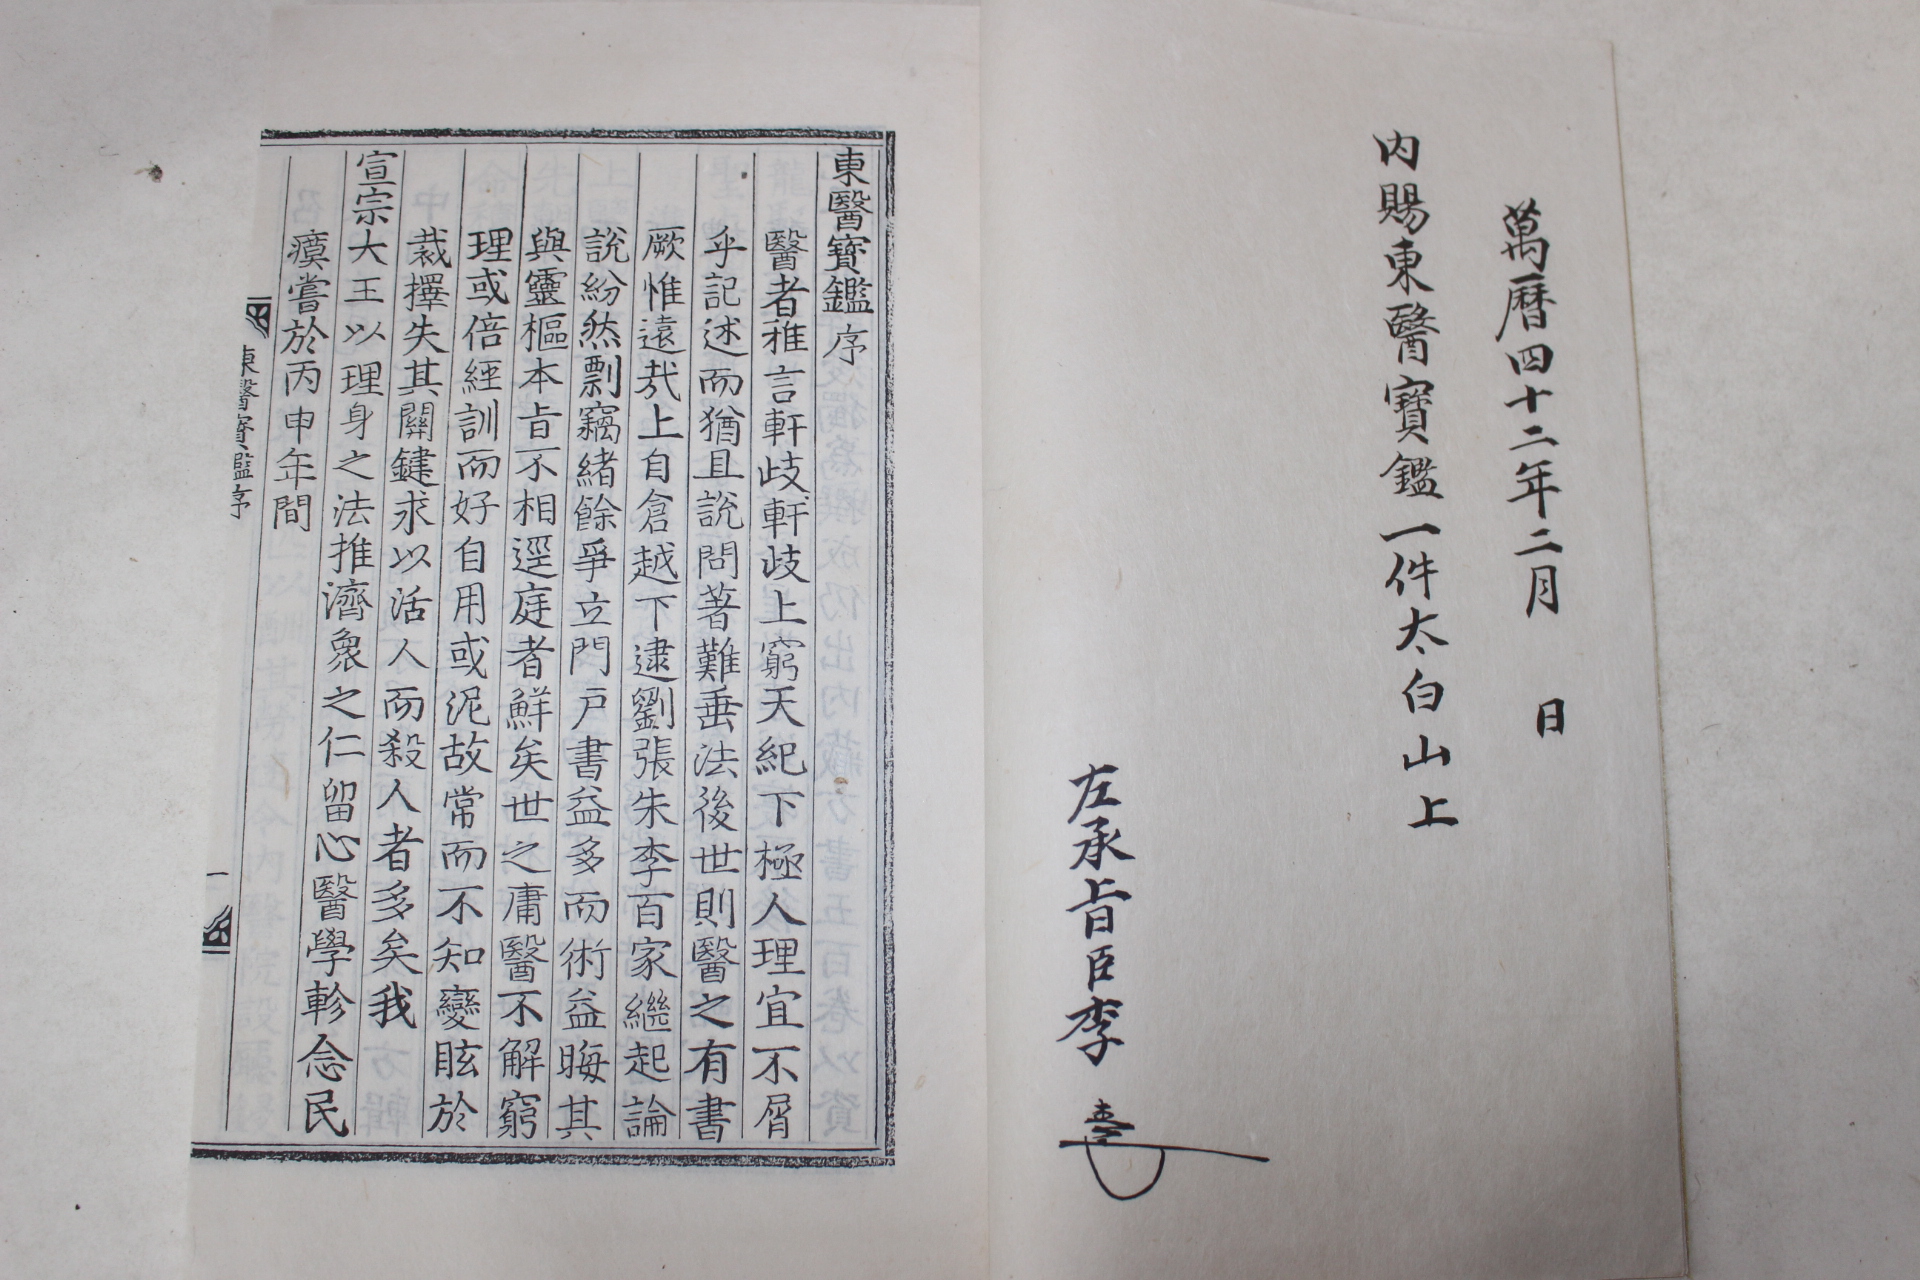 萬曆四十二年二月 日
内賜東醫寶鑑一件太白山上
左承旨臣李
東醫寶鑑序
醫者雅言軒歧軒歧上窮天紀下極人理宜不屑
乎記述而猶且說問著難垂法後世則醫之有書
厥惟遠㢤上自倉越下逮劉張朱李百家繼起論
說紛然剽竊緒餘爭立門戶書益多而術益晦其
與靈樞本旨不相逕庭者鮮矣世之庸醫不解窮
理或倍經訓而好自用或泥故常而不知變眩於
裁擇失其關鍵求以活人而殺人者多矣我
宣宗大王以理身之法推濟衆之仁留心醫學軫念民
瘼嘗於丙申年間
東醫寶鑑序
一